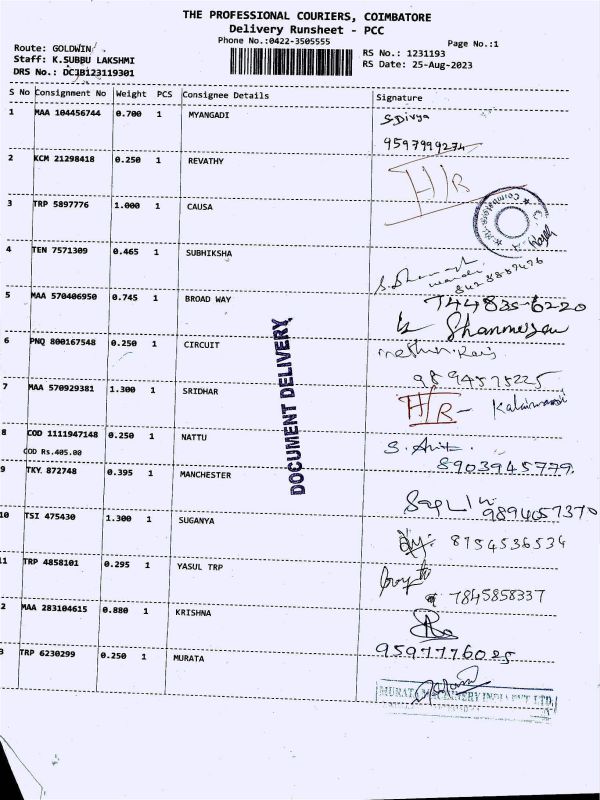 THE PROFESSIONAL COURIERS, COIMBATORE
Delivery Runsheet - PCC
Phone No.:0422-3505555
Page No.:1
Route: GOLDWIN
RS No.: 1231193
Staff: K.SUBBU LAKSHMI
RS Date: 25-Aug-2023
DRS No.: DCJB123119301
S No Consignment No Weight PCS Consignee Details Signature
1 MAA 104456744 0.700 1 MYANGADI S.Divya
9597999274
2 KCM 21298418 0.250 1 REVATHY H/R
3 TRP 5897776 1.000 1 CAUSA
4 TEN 7571309 0.465 1 SUBHIKSHA
5 MAA 570406950 0.745 1 BROAD WAY 744835-6220
Shanmugam
6 PNQ 800167548 0.250 1 CIRCUIT
9894575225
7 MAA 570929381 1.300 1 SRIDHAR H/R -
8 COD 1111947148 0.250 1 NATTU
COD Rs.405.00
8903945779
9 TKY 872748 0.395 1 MANCHESTER
9894057370
10 TSI 475430 1.300 1 SUGANYA 8754536534
11 TRP 4858101 0.295 1 YASUL TRP
7845858337
2 MAA 283104615 0.880 1 KRISHNA
9597776025
3 TRP 6230299 0.250 1 MURATA
MURATA MACHINERY INDIA PVT LTD.
DOCUMENT DELIVERY